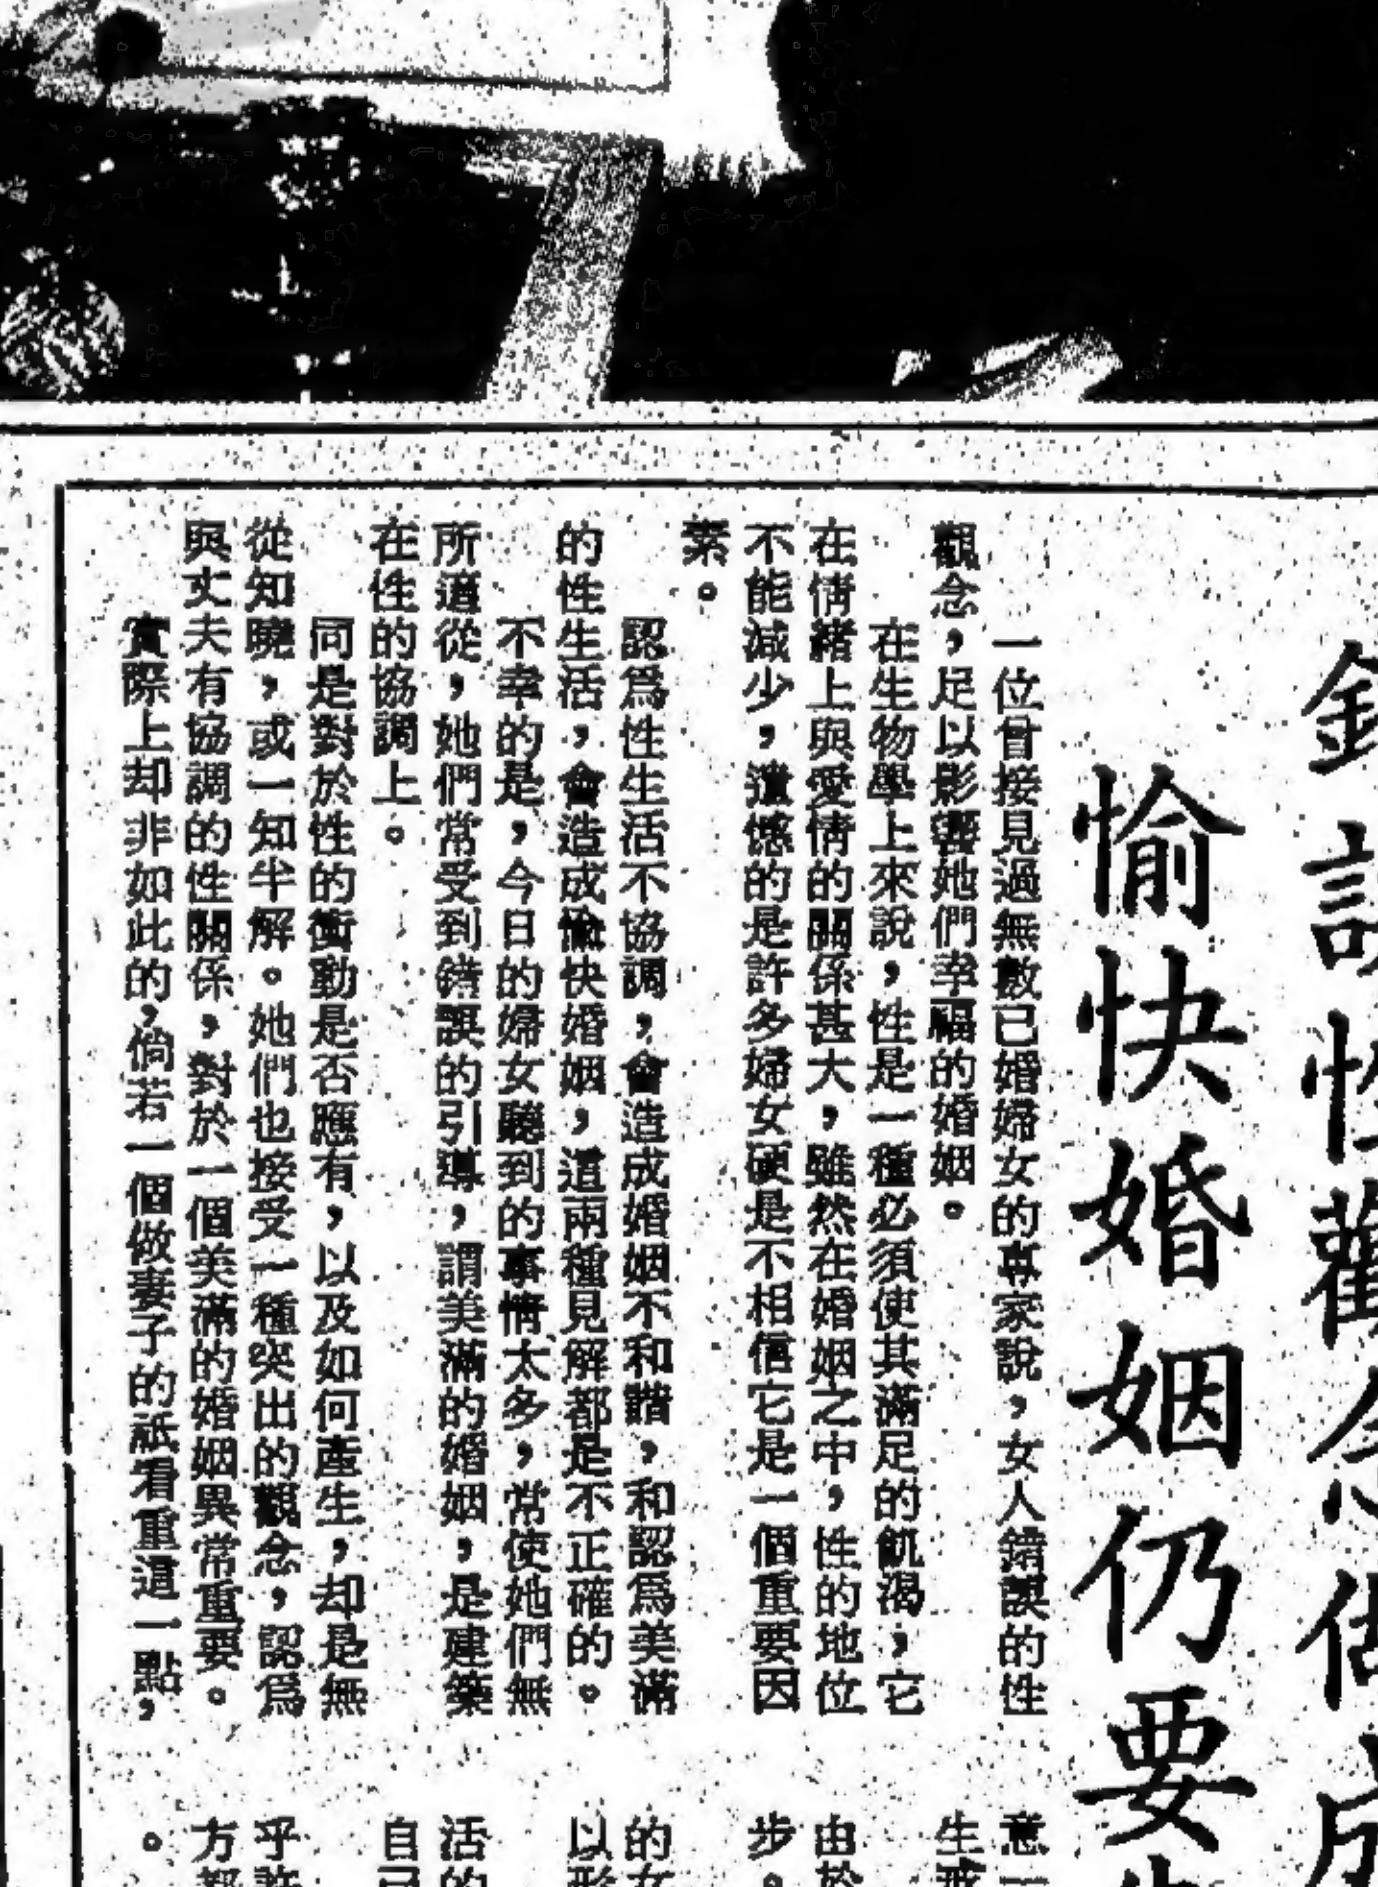 愉快婚姻仍要
一位曾接見過無數已婚婦女的專家說，女人錯誤的性
觀念，足以影響她們幸福的婚姻。
在生物學上來說，性是一種必須使其滿足的飢渴，它
在情緒上與愛情的關係甚大，雖然在婚姻之中，性的地位
不能減少，遺憾的是許多婦女硬是不相信它是一個重要因
素。
認爲性生活不協調，會造成婚姻不和諧，和認爲美滿
的性生活，會造成愉快婚姻，這兩種見解都是不正確的。
不幸的是，今日的婦女聽到的事情太多，常使她們無
所適從，她們常受到錯誤的引導，謂美滿的婚姻，是建築
在性的協調上。
同是對於性的衝動是否應有，以及如何產生，却是無
從知曉，或一知半解。她們也接受一種突出的觀念，認爲
與丈夫有協調的性關係，對於一個美滿的婚姻異常重要。
實際上却非如此的，倘若一個做妻子的祇看重這一點，
意一
生戒
由於
步。
的女
以形
活的
自己
乎許
方都
。